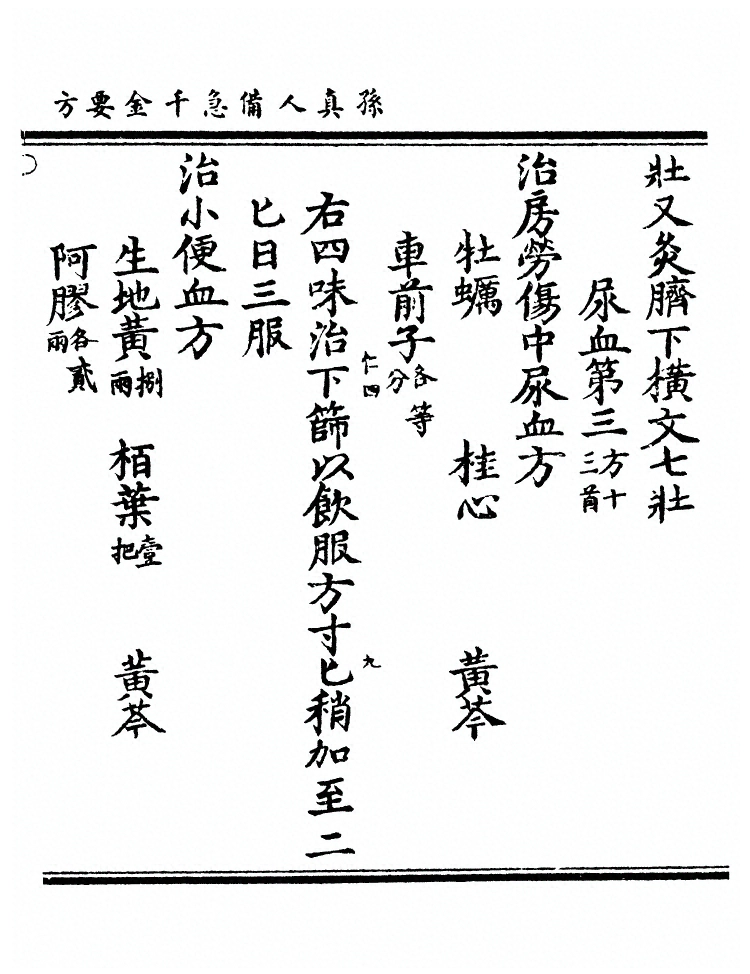 孫真人備急千金要方
壯又灸臍下橫文七壯
尿血第三方十三首
治房勞傷中尿血方
牡蠣 桂心 黃芩
車前子各等分
右四味治下篩以飲服方寸匕稍加至二
匕日三服
治小便血方
生地黃捌兩 栢葉壹把 黃芩
阿膠各貳兩
仁四
九